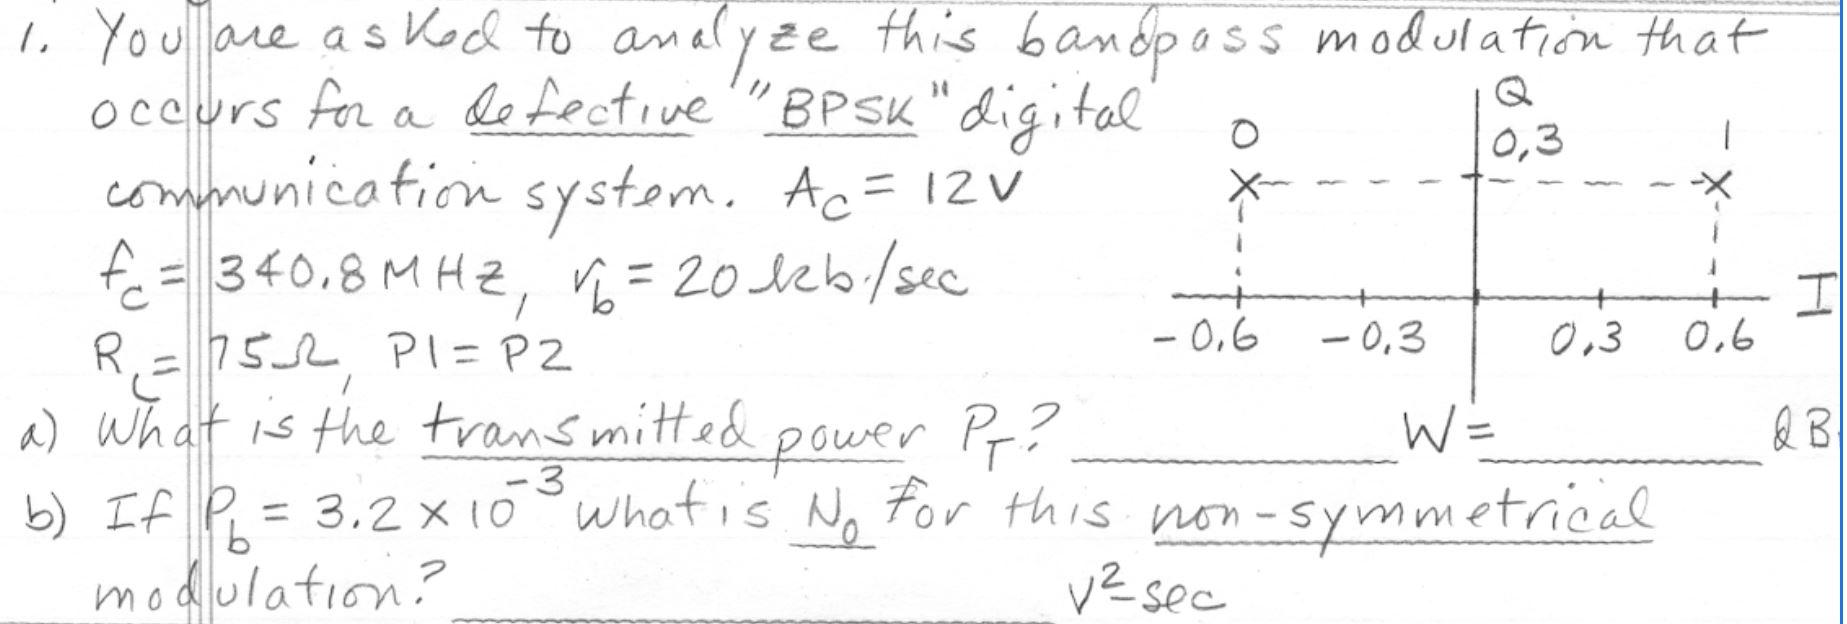 1. You are asked to analyze this bandpass modulation that
occurs for a defective "BPSK" digital
communication system. Ac = 12V
fc = 340.8 MHz, rb = 20 kb/sec
RL = 75Ω, P1 = P2
Q
0 0,3 1
-0.6 -0.3 0.3 0.6 I
a) What is the transmitted power PT? W = dB
b) If Pb = 3.2 x 10^-3 what is No for this non-symmetrical
modulation? V²-sec